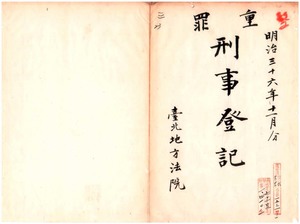 明治三十六年十一月分
重罪
刑事登記
臺北地方法院